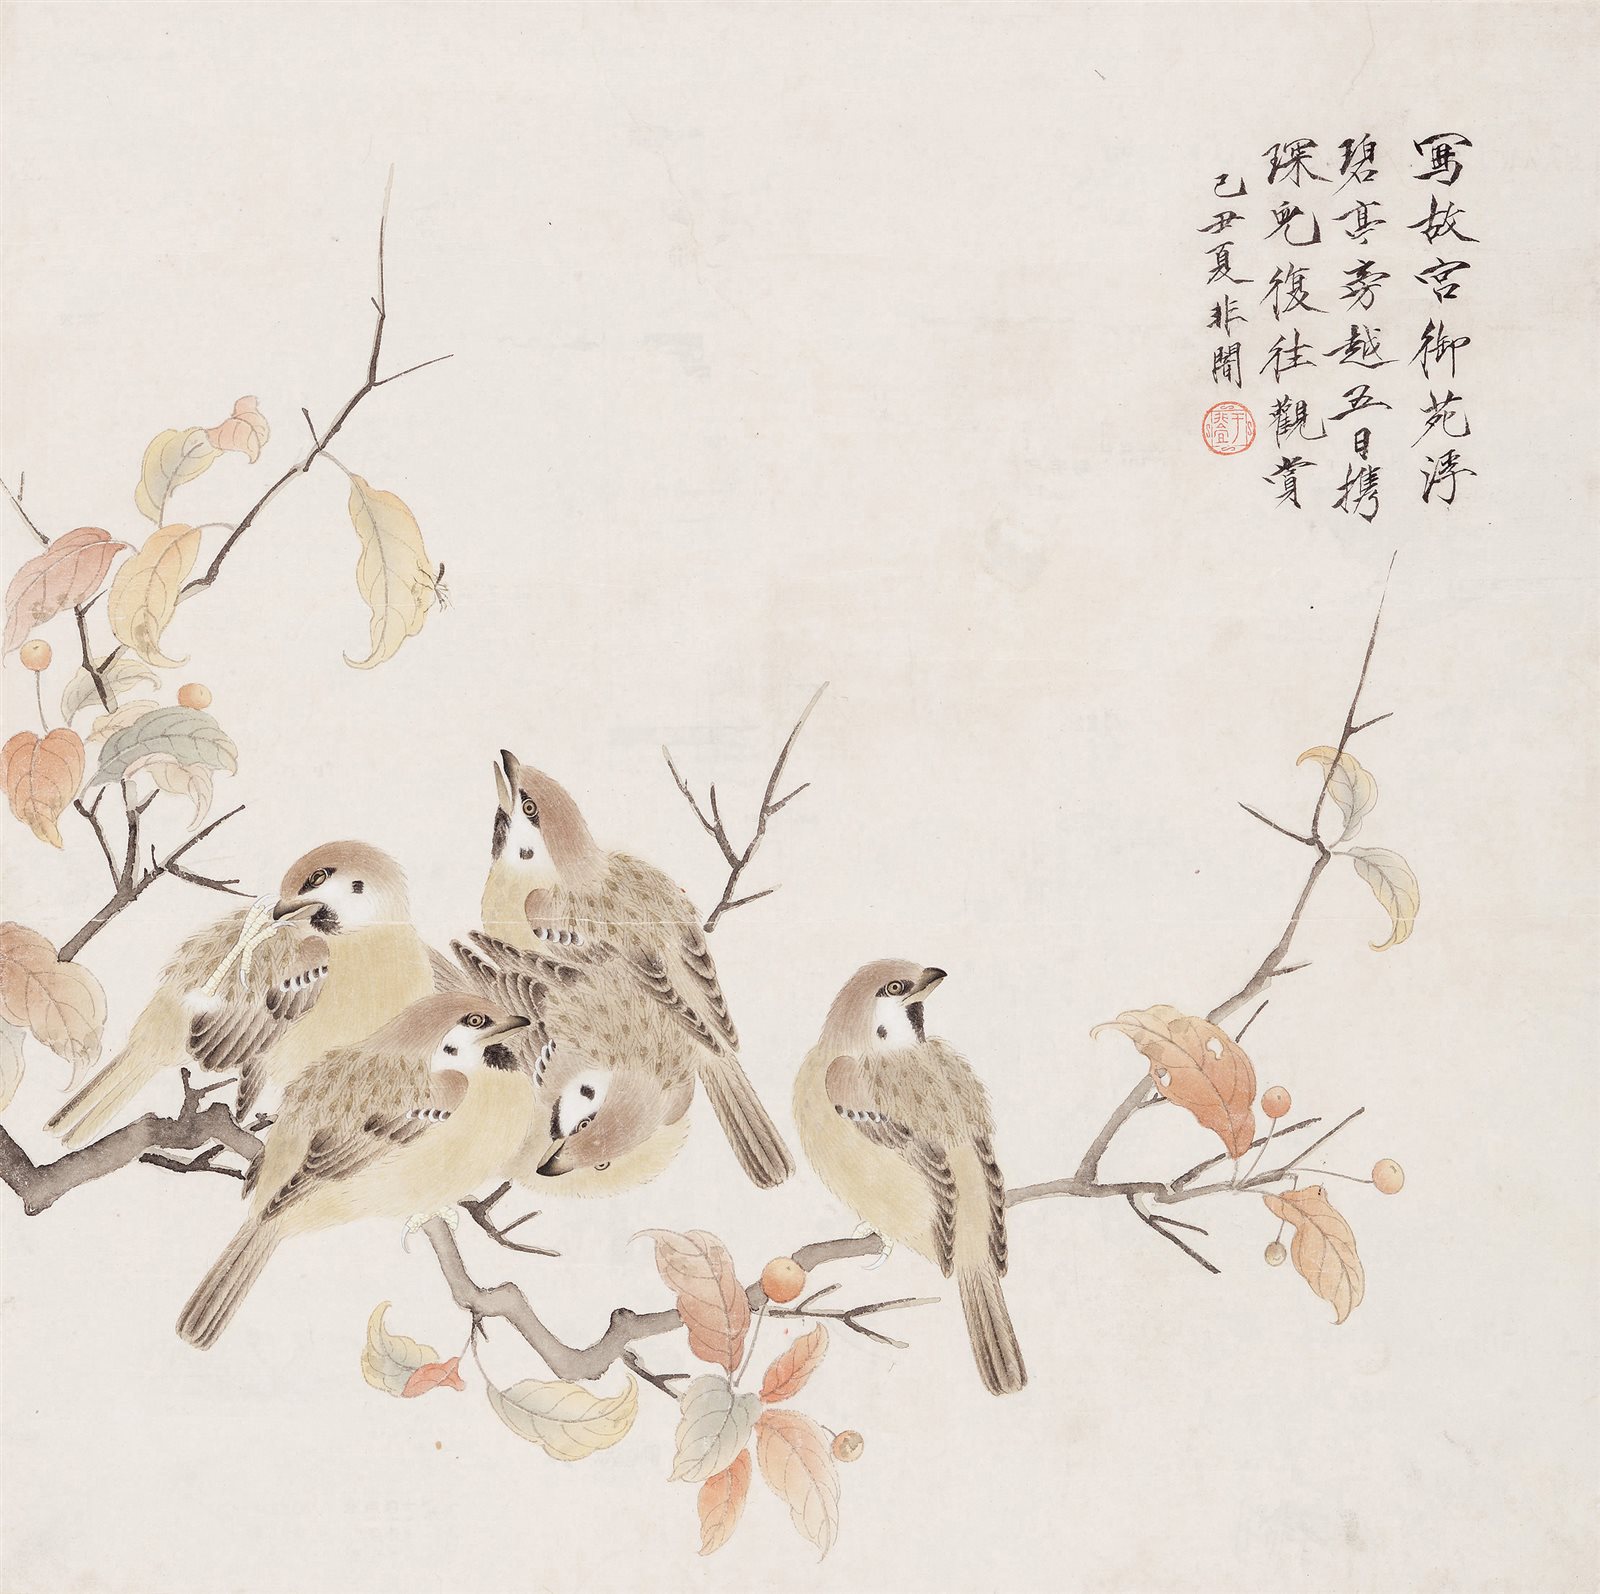 寫故宮御苑浮
碧亭旁越五日携
琛兒復往觀賞
己丑夏非闇
于非闇